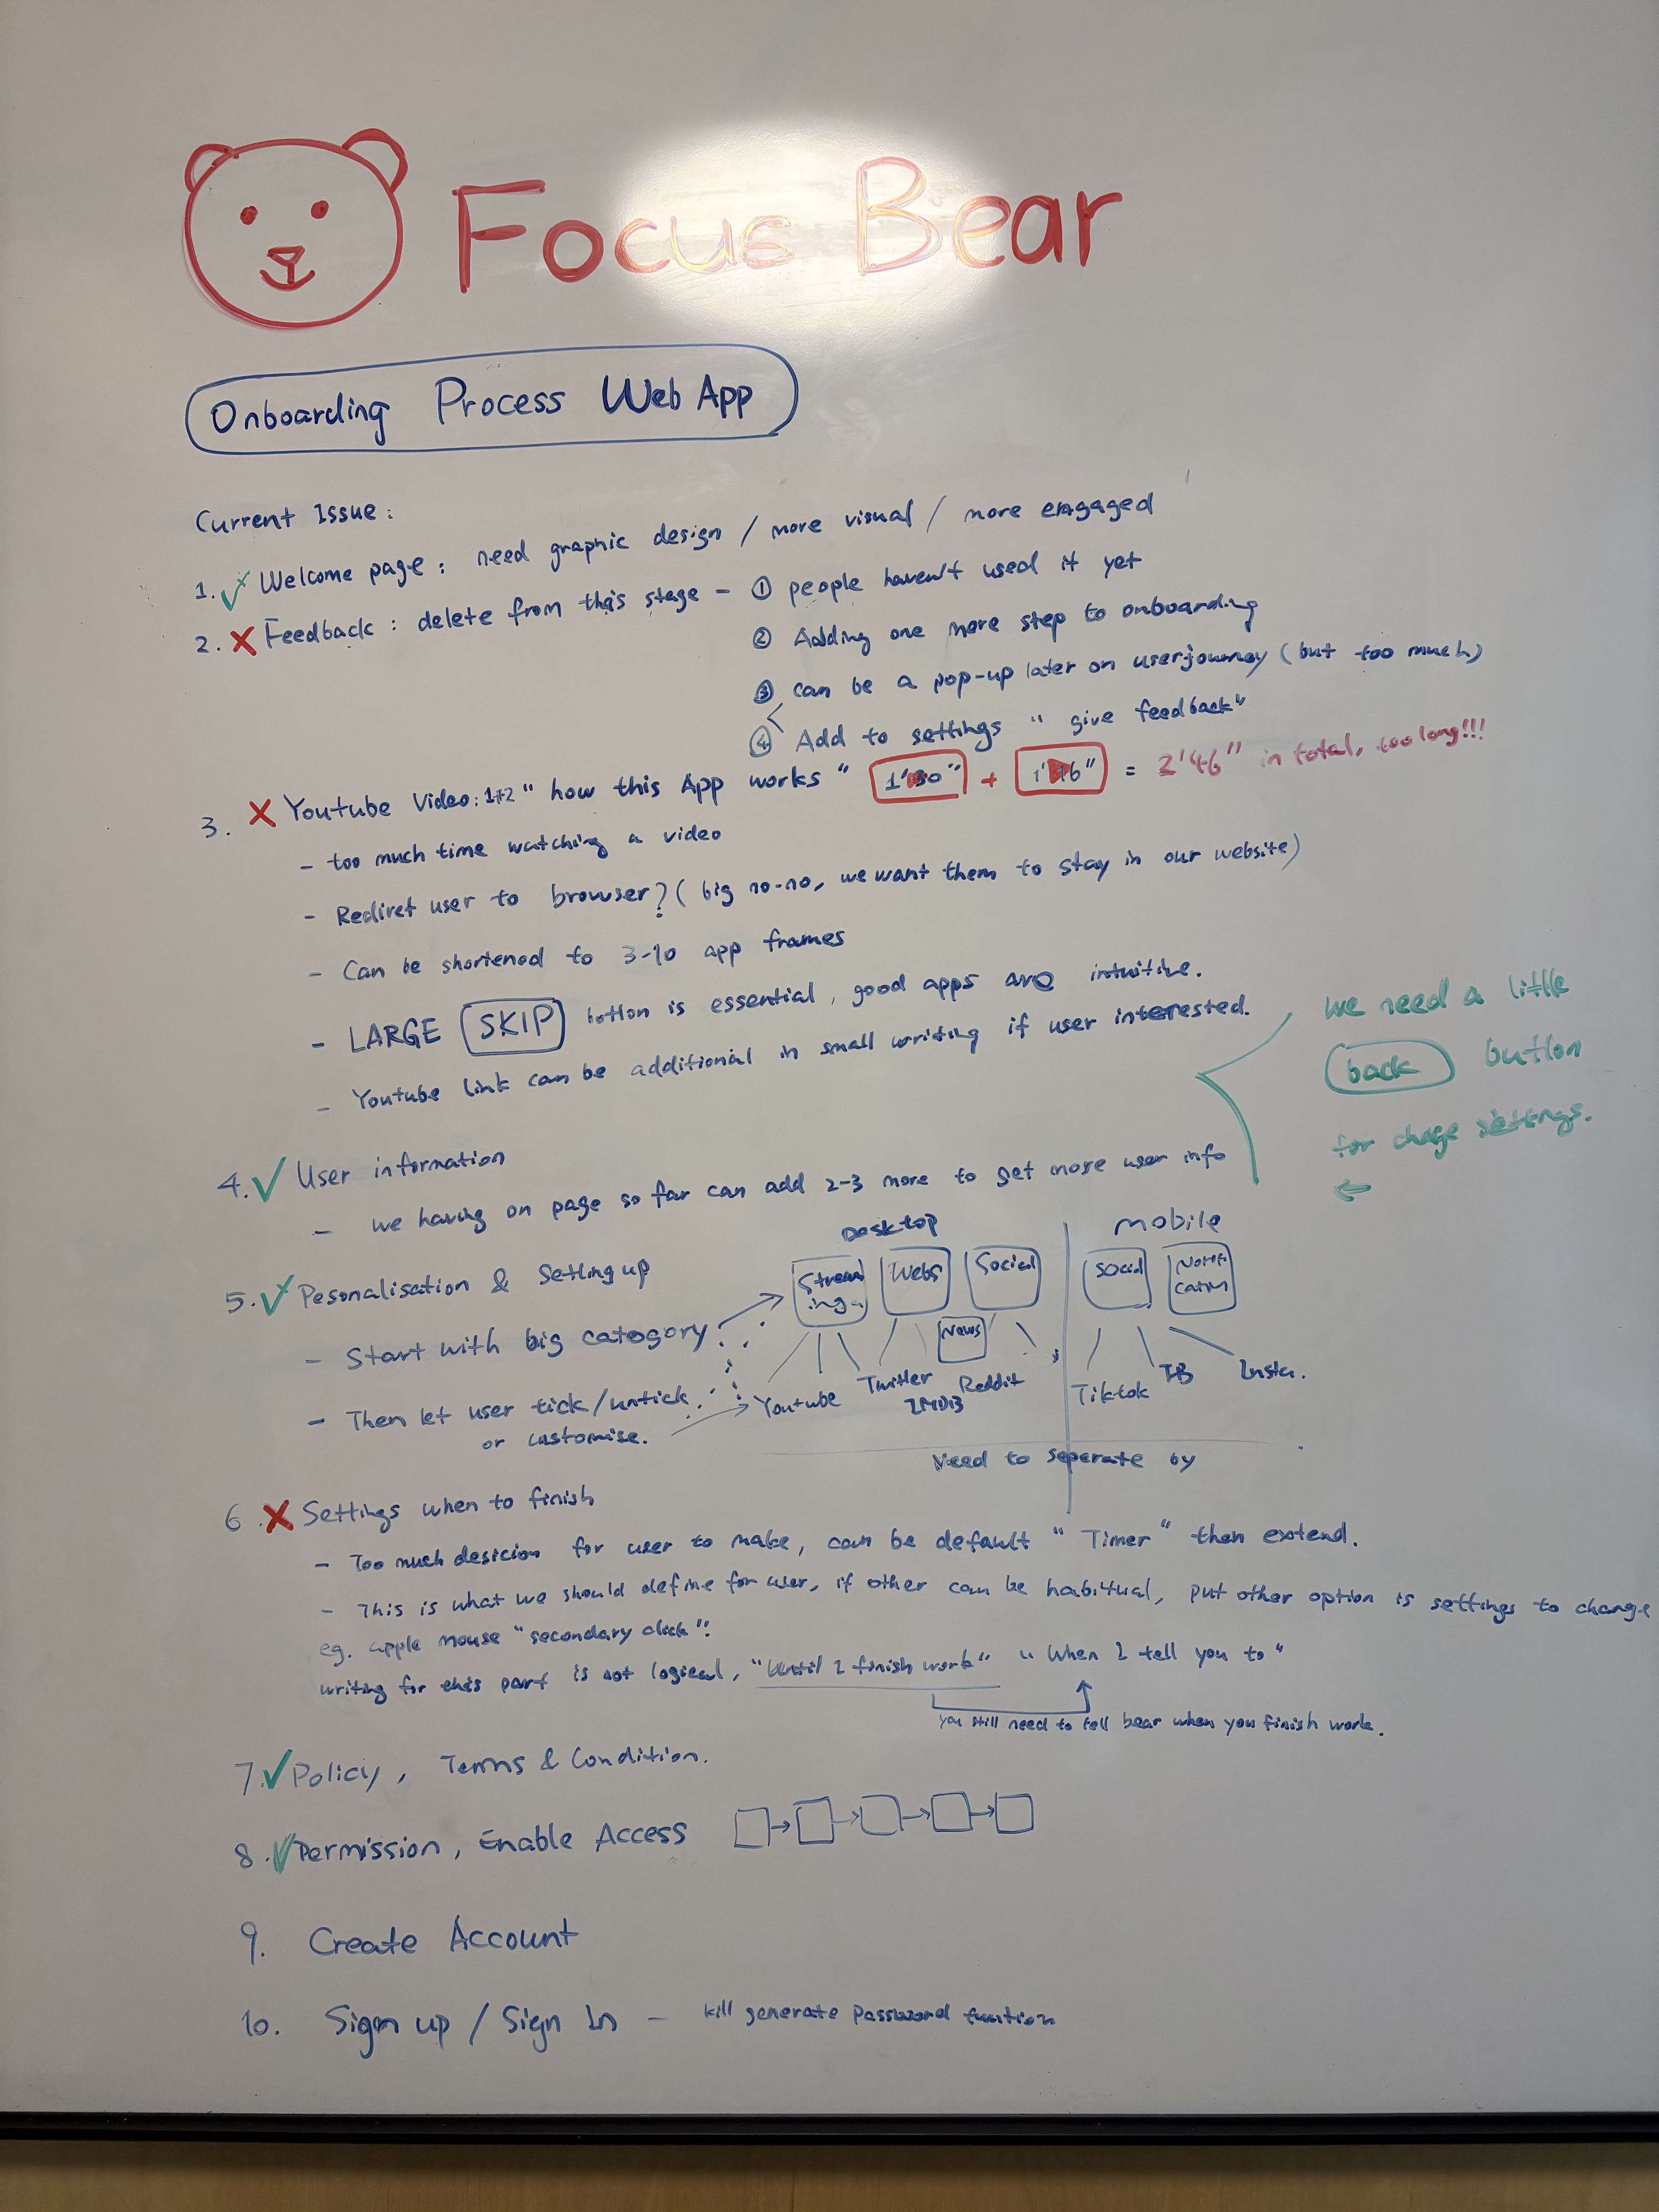 Focus Bear
Onboarding Process Web App
Current Issue:
1. ✓ Welcome page: need graphic design / more visual / more engaged
2. ✗ Feedback: delete from this stage - ① people haven't used it yet
② Adding one more step to onboarding
③ can be a pop-up later on userjourney (but too much)
④ Add to settings "give feedback"
3. ✗ Youtube Video: 1+2 "how this App works" 1' " + 1' 6" = 2'46" in total, too long!!!
- too much time watching a video
- Rediret user to browser? (big no-no, we want them to stay in our website)
- Can be shortened to 3-10 app frames
- LARGE SKIP button is essential, good apps are intuitive.
- Youtube link can be additional in small writing if user interested.
we need a little
back button
for chage settings.
←
4. ✓ User information
- we having on page so far can add 2-3 more to get more user info
5. ✓ Pesonalisation & Setting up
Desktop mobile
Stream ing Webs Social Social Notifi cation
News
- Start with big category
Youtube Twitter IMDB Reddit Tiktok FB Insta.
- Then let user tick/untick
or customise.
Need to seperate by
6. ✗ Settings when to finish
- Too much desicion for user to make, can be default "Timer" then extend.
- This is what we should define for user, if other can be habitual, put other option is settings to change
eg. apple mouse "secondary click".
writing for this part is not logical, "Until I finish work" "When I tell you to"
you still need to tell bear when you finish work.
7. ✓ Policy, Terms & Condition.
8. ✓ Permission, Enable Access
9. Create Account
10. Sign up / Sign In - kill generate password function